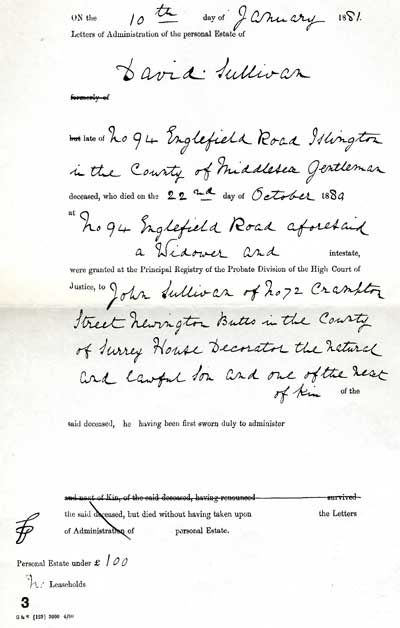 ON the 10th day of January 1881.
Letters of Administration of the personal Estate of
David Sullivan
formerly of
but late of No 94 Englefield Road Islington
in the County of Middlesex Gentleman
deceased, who died on the 22nd day of October 1880
at
No 94 Englefield Road aforesaid
a Widower and intestate,
were granted at the Principal Registry of the Probate Division of the High Court of
Justice, to John Sullivan of No 72 Crampton
Street Newington Butts in the County
of Surrey House Decorator the natural
and lawful Son and one of the next
of kin of the
said deceased, he having been first sworn duly to administer
and next of Kin, of the said deceased, having renounced survived
the said deceased, but died without having taken upon the Letters
of Administration of personal Estate.
Personal Estate under £ 100
No Leaseholds
3